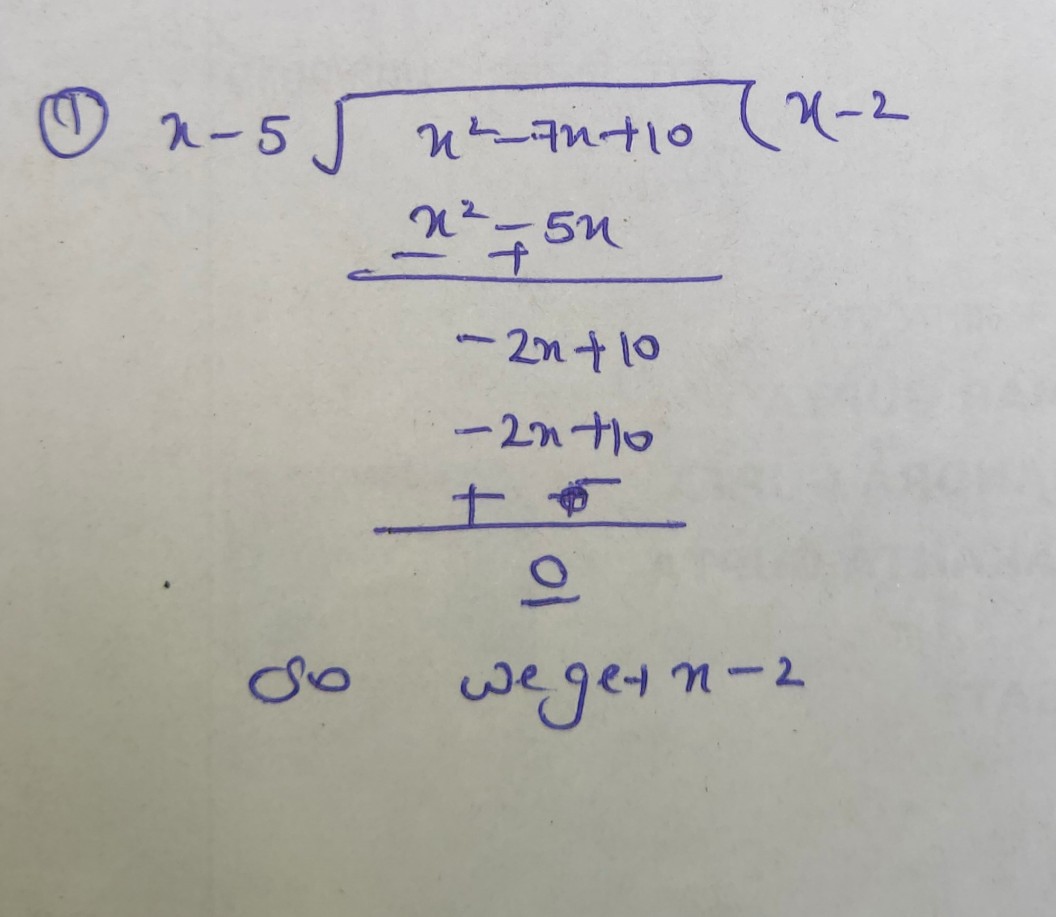 ① x-5 ) x²-7x+10 ( x-2
x² - 5x
- +
-2x+10
-2x+10
+ -
0
So we get x-2